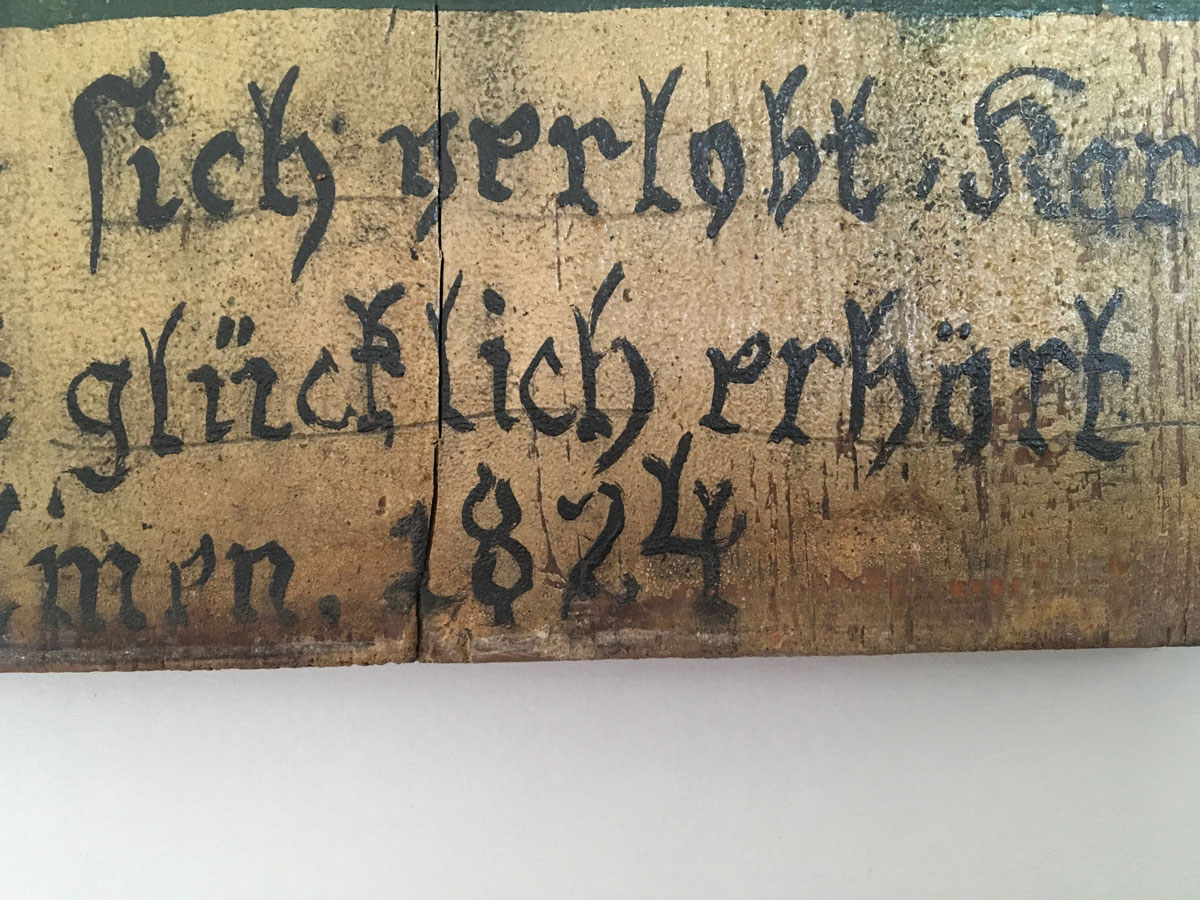 sich verlobt, Kar
glücklich erhört
men. 1824